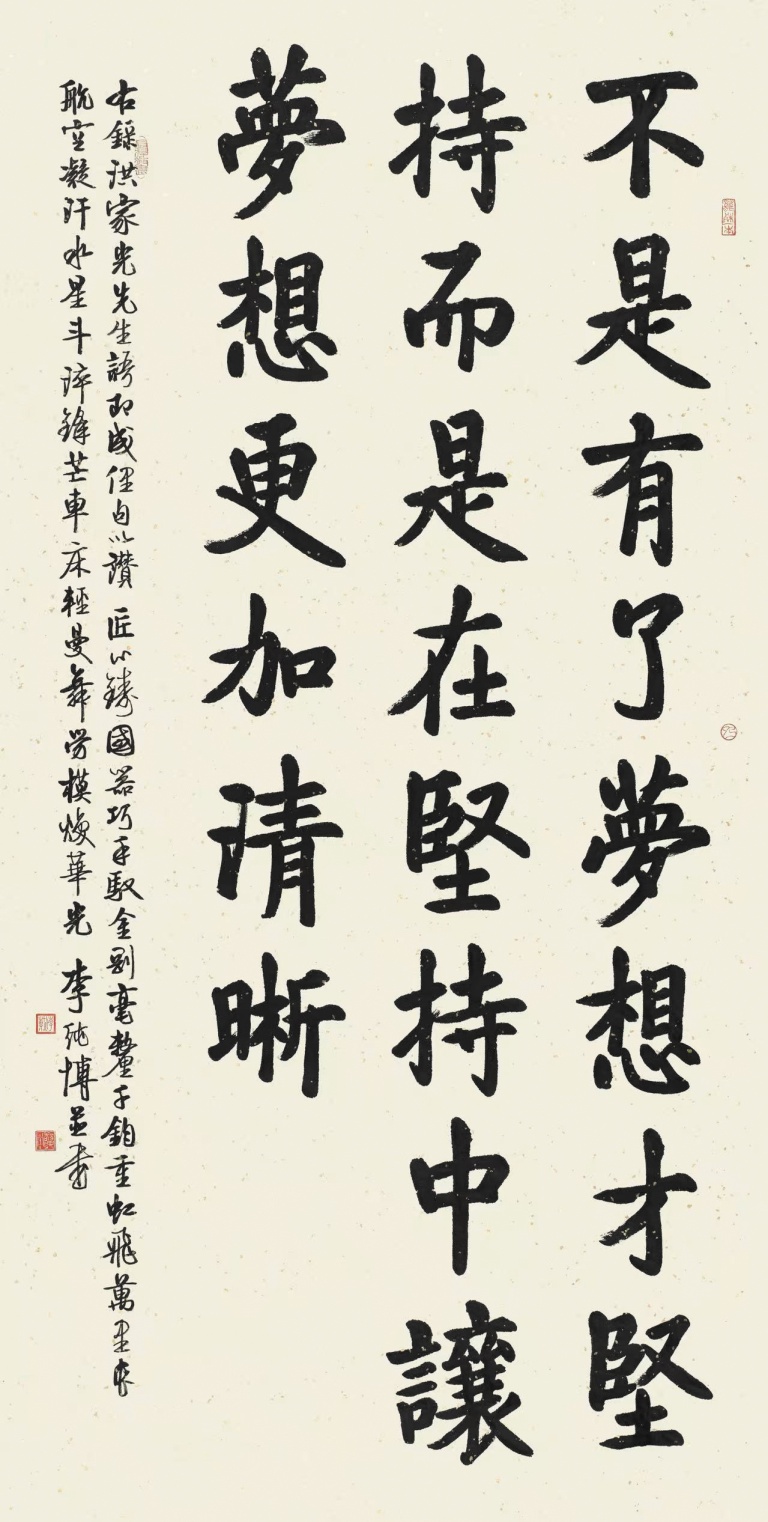 不是有了夢想才堅
持而是在堅持中讓
夢想更加清晰
右錄洪家光先生語即成俚句以讚 匠心鑄國器巧手馭金剛毫釐千鈞重虹飛萬里長
航空凝汗水星斗淬鋒芒車床輕曼舞勞模煥華光 李 博並書